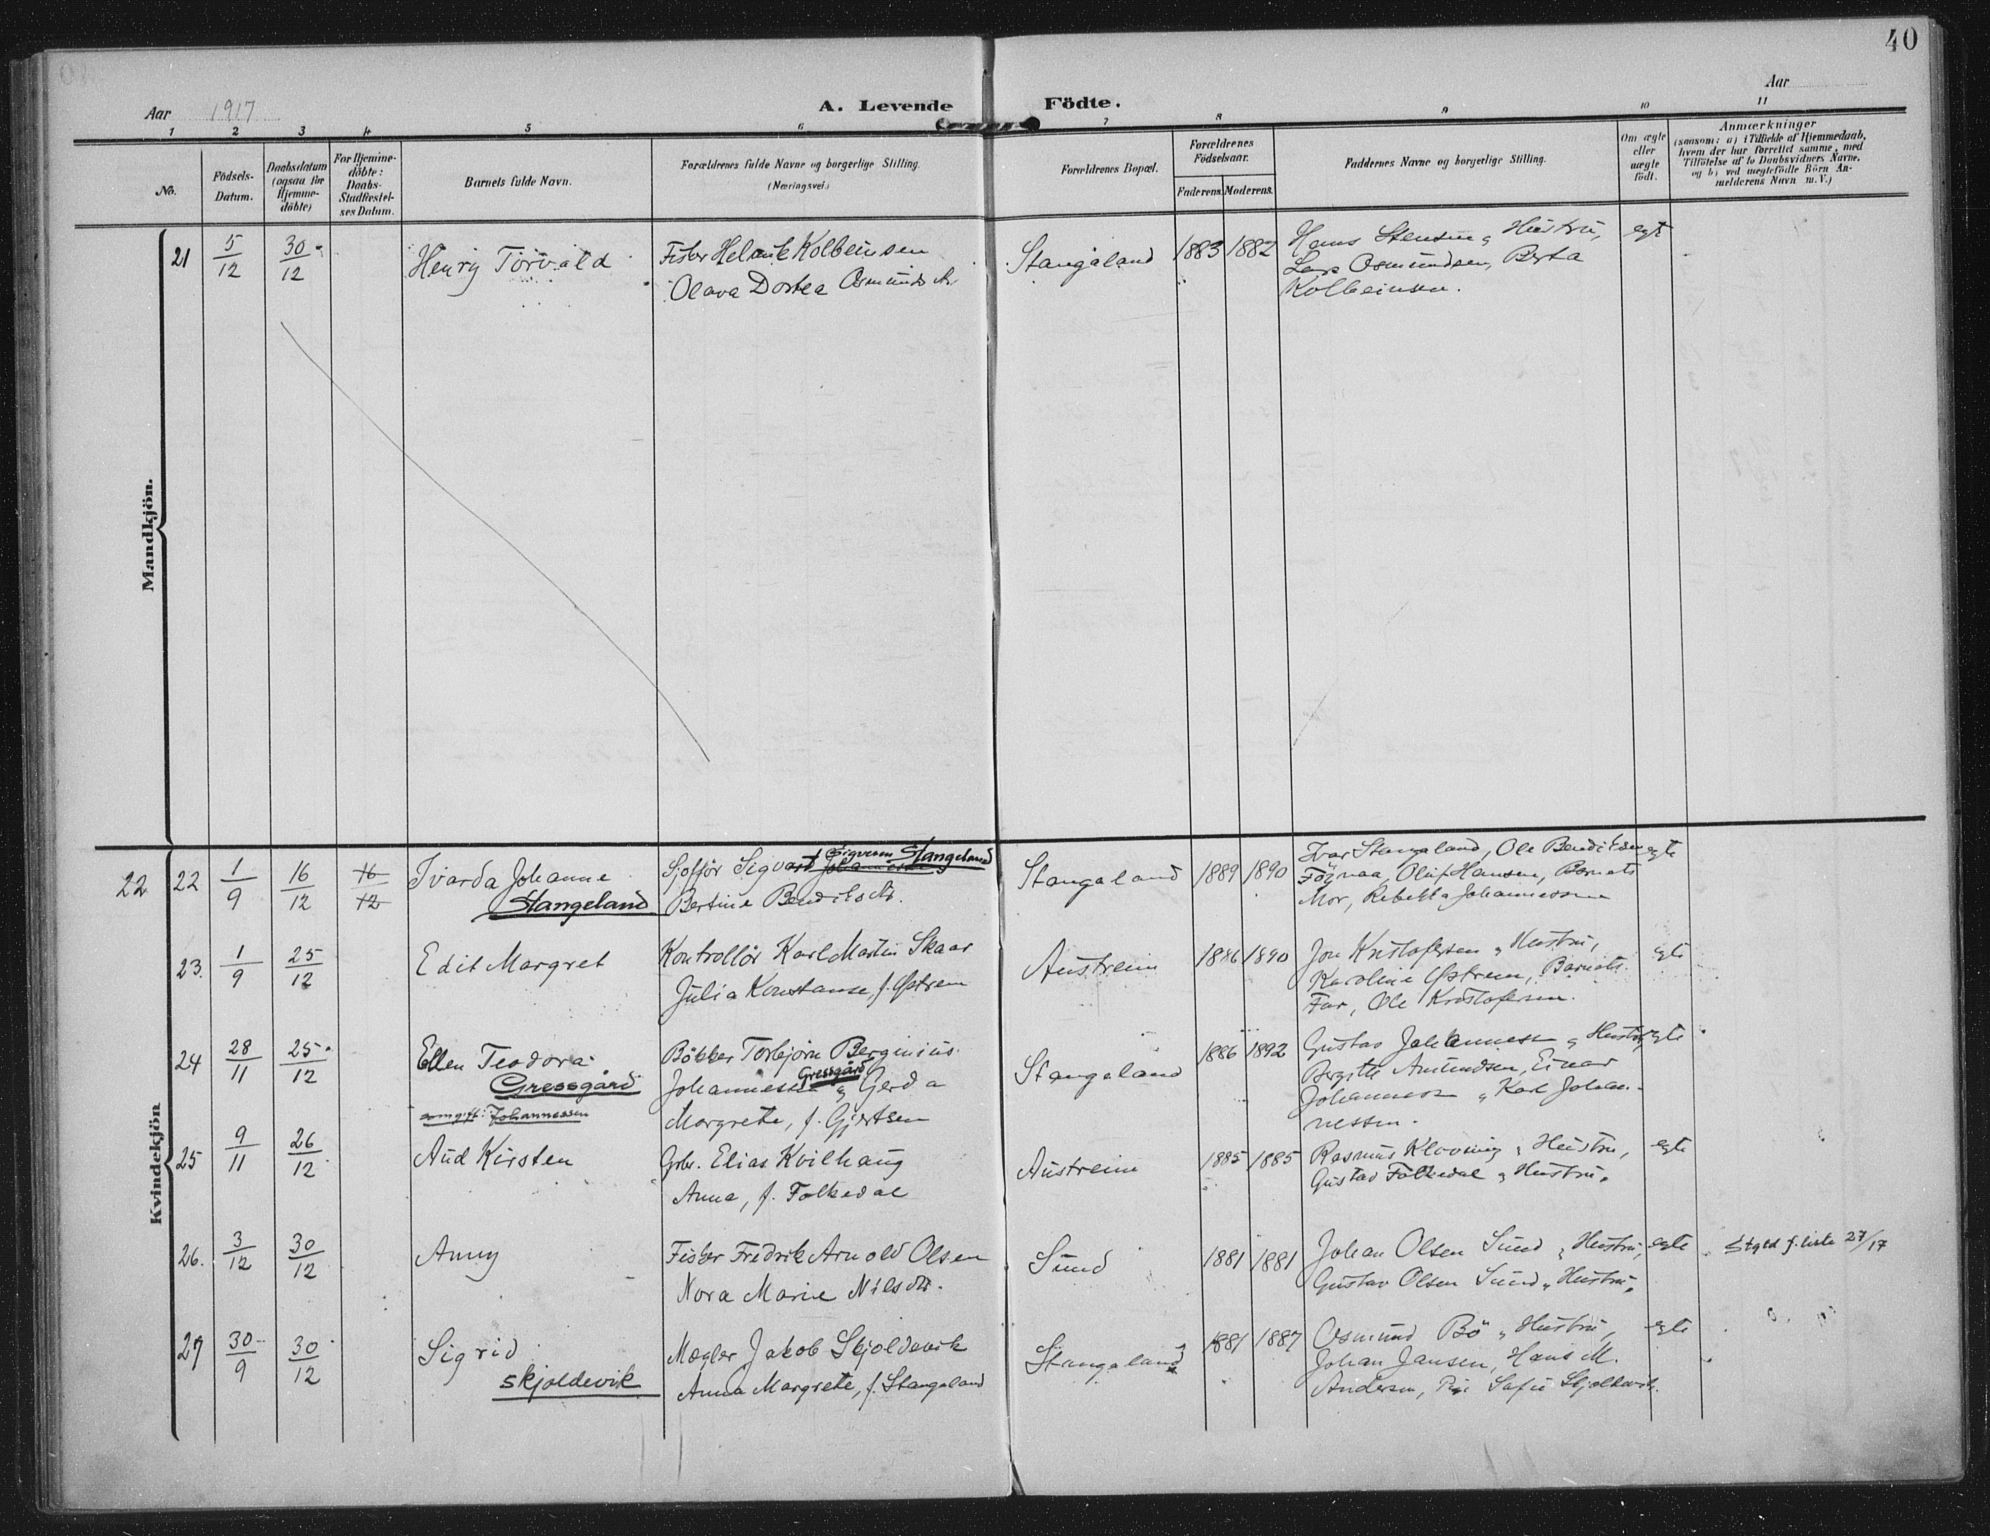 40
Aar 1917
A. Levende Födte.
Aar
1 2 3 4 5 6 7 8 9 10 11
No.
Födsels-Datum.
Daabsdatum (ogsaa for Hjemme-döbte)
For Hjemme-döbte: Daabs-Stadfæstel-ses Datum.
Barnets fulde Navn.
Forældrenes fulde Navne og borgerlige Stilling.
(Næringsvei.)
Forældrenes Bopæl.
Forældrenes Födselsaar.
Faderens. Moderens.
Faddernes Navne og borgerlige Stilling.
Om ægte eller uægte födt.
Anmærkninger
(saasom: a) i Tilfælde af Hjemmedaab, hvem der har forrettet samme, med Tilföielse af to Daabsvidners Navne, og b) ved uægtefödte Börn Anmelderens Navn m. V.)
Mandkjön.
21 5/12 30/12 Henry Torvald Fisker Helmik Kolbeinsen Stangaland 1883 1882 Hans Stensen Hustru, egt
Olava Dortea Osmundsdtr Lars Osmundsen, Berta
Kolbeinsen.
Kvindekjön
22 22 1/9 16/12 16/12 Ivarda Johanne Sjofför Sigvard Sigversen Stangeland Stangaland 1889 1890 Ivar Stangaland, Ole Bendiksen egte
Stangeland Bertine Bendiksdtr. Föynaa, Oluf Hansen, Barnets
Mor, Rebekka Johannessen
23. 1/9 25/12 Edit Margret Kontrollör Karl Martin Skaar Austreim 1886 1890 Jon Kristofersen Hustru, egte
Julia Konstanse f. Östrem Karoline Östrem, Barnets
Far, Ole Kristofersen.
24 28/11 25/12 Ellen Teodora Bökker Torbjörn Berginius Stangaland 1886 1892 Gustav Johannessen Hustru egte
Gressgård Johannessen Gressgård og Gerda Bergitte Amundsen, Einar
omgift: Johannessen Margrete, f. Gjertsen Johannessen Karl Johan-
nessen.
25 9/11 26/12 Aud Kirsten Gbr. Elias Kvilhaug Austreim 1885 1885 Rasmus Klovning Hustru, egte
Anna, f. Folkedal Gustav Folkedal Hustru.
26. 3/12 30/12 Anny Fisker Fredrik Arnold Olsen Sund 1881 1881 Johan Olsen Sund Hustru, egte f. liste 27/17
Nora Marie Nilsdtr. Gustav Olsen Sund Hustru.
27 30/9 30/12 Sigrid Mægler Jakob Skjoldevik Stangaland 1881 1887 Osmund Bö Hustru, egte
Skjoldevik Anna Margrete, f. Stangeland Johan Jansen, Hans M.
Andersen, Sofie Skjoldevik.